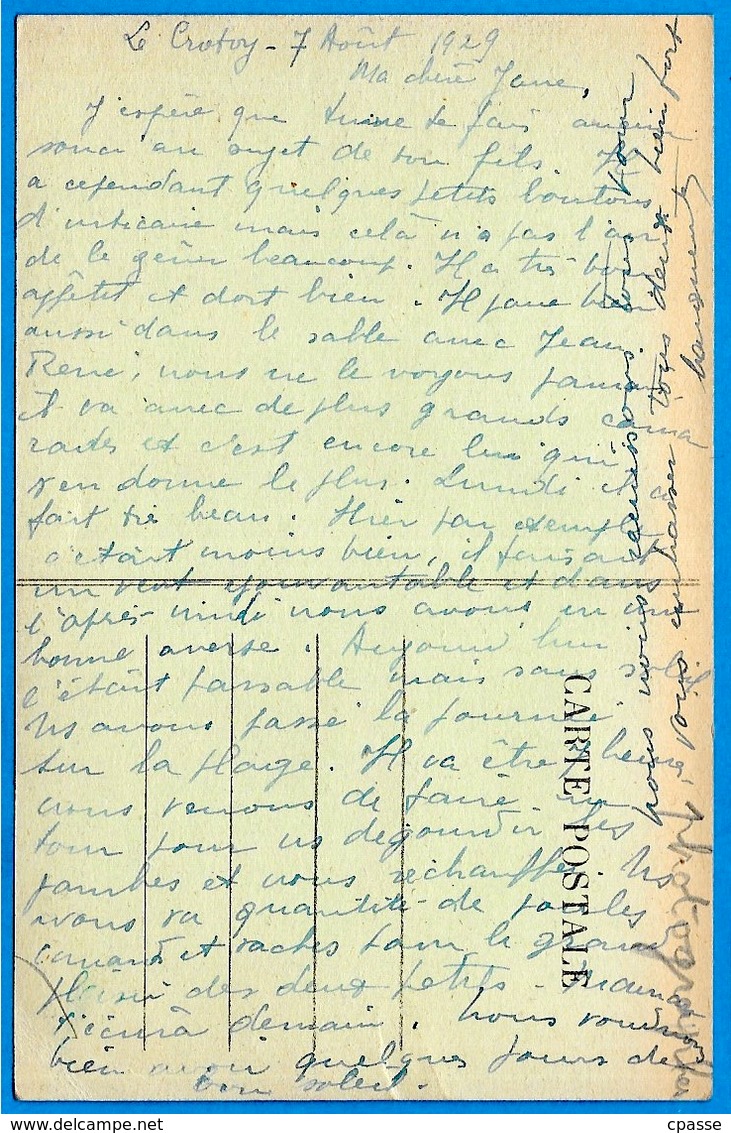 Le Crotoy - 7 Août 1929
Ma chère Jane,
J'espère que tu ne te fais aucun
souci au sujet de ton fils. Il
a cependant quelques petits boutons
d'urticaire mais celà n'a pas l'air
de le gêner beaucoup. Il a très bon
appétit et dort bien. Il joue bien
aussi dans le sable avec Jean.
René, nous ne le voyons jamais
il va avec de plus grands cama
rades et c'est encore lui qui
s'en donne le plus. Lundi il a
fait très beau. Hier par exemple
c'était moins bien, il faisait
un vent épouvantable et dans
l'après-midi nous avons eu une
bonne averse. Aujourd'hui
c'était passable mais sans soleil
Ns avons passé la journée
sur la plage. Il va être 7 heures,
nous venons de faire un
tour pour ns dégourdir les
jambes et nous réchauffer. Ns
avons vu quantité de poules
canards et vaches pour le grand
plaisir des deux petits - Maman
t'écrira demain. Nous voudrions
bien avoir quelques jours de
bon soleil.
nous nous réunissons tous pour
vous embrasser tous deux bien fort
CARTE POSTALE
cpasse